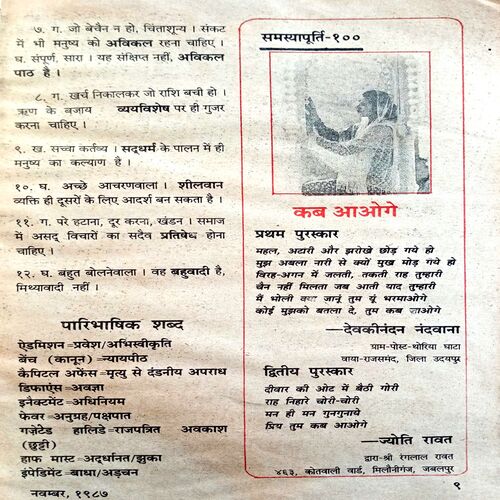 ७. ग. जो बेचैन न हो, चिंताशून्य । संकट
में भी मनुष्य को अविकल रहना चाहिए ।
घ. संपूर्ण, सारा । यह संक्षिप्त नहीं, अविकल
पाठ है ।
८. ग. खर्च निकालकर जो राशि बची हो ।
ऋण के बजाय व्ययविशेष पर ही गुजर
करना चाहिए ।
९. ख. सच्चा कर्तव्य । सद्धर्म के पालन में ही
मनुष्य का कल्याण है ।
१०. घ. अच्छे आचरणवाला । शीलवान
व्यक्ति ही दूसरों के लिए आदर्श बन सकता है ।
११. ग. परे हटाना, दूर करना, खंडन । समाज
में असद् विचारों का सदैव प्रतिषेध होना
चाहिए ।
१२. घ. बहुत बोलनेवाला । वह बहुवादी है,
मिथ्यावादी नहीं ।
पारिभाषिक शब्द
ऐडमिशन=प्रवेश/अभिस्वीकृति
बेंच (कानून)=न्यायपीठ
कैपिटल अफेंस=मृत्यु से दंडनीय अपराध
डिफाएंस=अवज्ञा
इनेक्टमेंट=अधिनियम
फेवर=अनुग्रह/पक्षपात
गज़ेटेड हालिडे=राजपत्रित अवकाश
(छुट्टी)
हाफ मास्ट=अर्द्धनत/झुका
इंपेडिमेंट=बाधा/अड़चन
नवम्बर, १९८७
समस्यापूर्ति-१००
कब आओगे
प्रथम पुरस्कार
महल, अटारी और झरोखे छोड़ गये हो
मुझ अबला नारी से क्यों मुख मोड़ गये हो
विरह-अगन में जलती, तकती राह तुम्हारी
चैन नहीं मिलता जब आती याद तुम्हारी
मैं भोली क्या जानूं तुम यूं भरमाओगे
कोई मुझको बतला दे, तुम कब आओगे
—देवकीनंदन नंदवाना
ग्राम-पोस्ट-थोरिया घाटा
वाया-राजसमंद, जिला उदयपुर
द्वितीय पुरस्कार
दीवार की ओट में बैठी गोरी
राह निहारे चोरी-चोरी
मन ही मन गुनगुनाये
प्रिय तुम कब आओगे
—ज्योति रावत
द्वारा-श्री रंगलाल रावत
४६३, कोतवाली वार्ड, मिलौनीगंज, जबलपुर
९